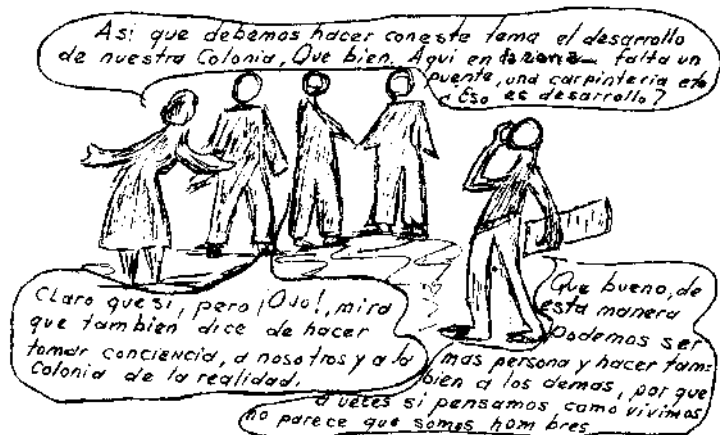 Asi que debemos hacer coneste tema el desarrollo
de nuestra Colonia, Que bien. Aqui en la zona falta un
puente, una carpinteria etc
¿Eso es desarrollo?
Claro que si, pero ¡Ojo!, mira
que tambien dice de hacer
tomar conciencia, a nosotros y a la
Colonia de la realidad.
Que bueno, de
esta manera
Podemos ser
mas persona y hacer tam=
bien a los demas, por que
a veces si pensamos como vivimos
no parece que somos hombres